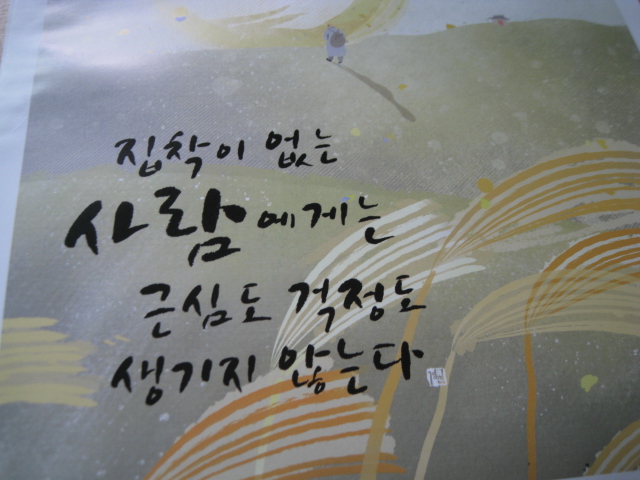 집착이 없는
사람에게는
근심도 걱정도
생기지 않는다